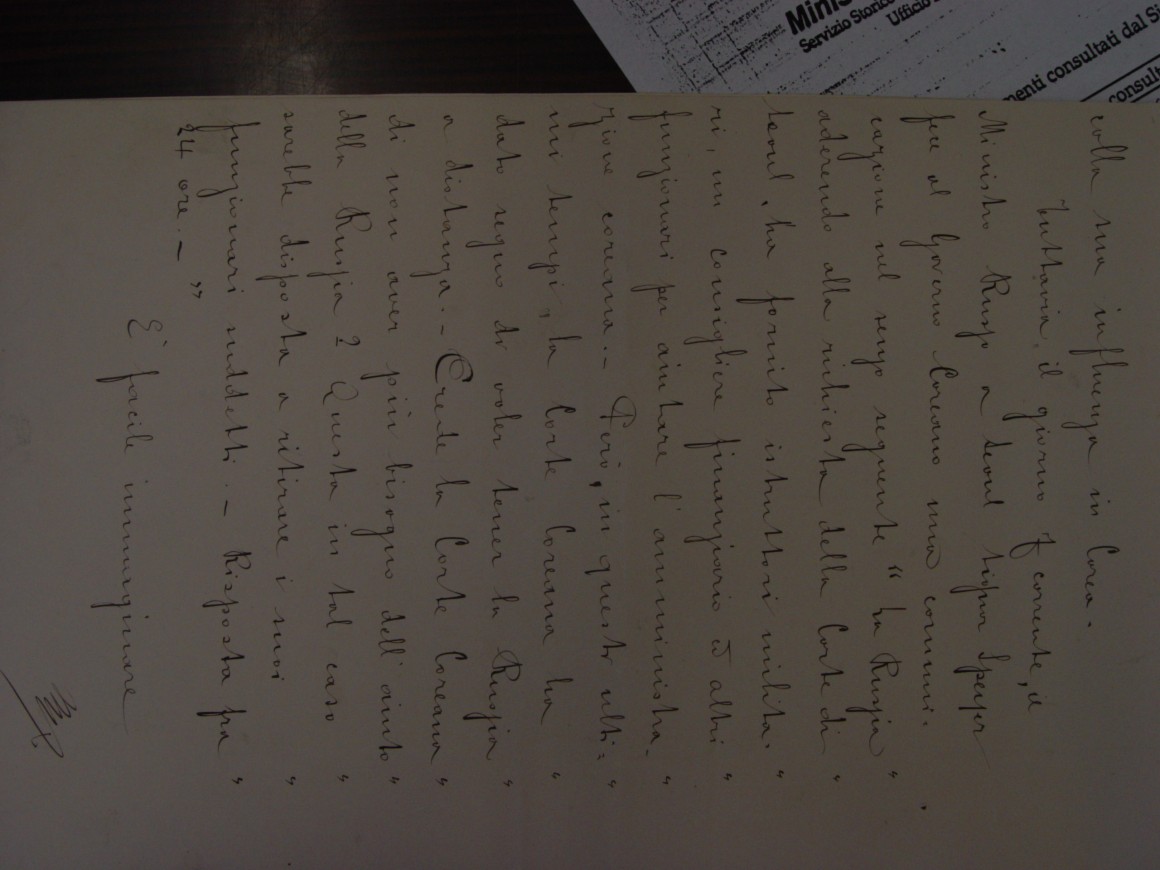 colla sua influenza in Corea.
Tuttavia, il giorno 7 corrente, il
Ministro Russo a Seoul Signor Speyer
fece al Governo Coreano una comuni-
cazione nel senso seguente “ La Russia
aderendo alla richiesta della Corte di „
Seoul, ha fornito istruttori milita- „
ri, un consigliere finanziario ed altri „
funzionari per aiutare l'amministra- „
zione coreana. - Però, in questi ulti= „
mi tempi, la Corte Coreana ha „
dato segno di voler tener la Russia „
a distanza. - Crede la Corte Coreana „
di non aver più bisogno dell'aiuto „
della Russia? Questa in tal caso „
sarebbe disposta a ritirare i suoi „
funzionari suddetti. - Risposta fra „
24 ore. - „
E' facile immaginare
Minis
Servizio Storico
Ufficio
menti consultati dal Si
consult